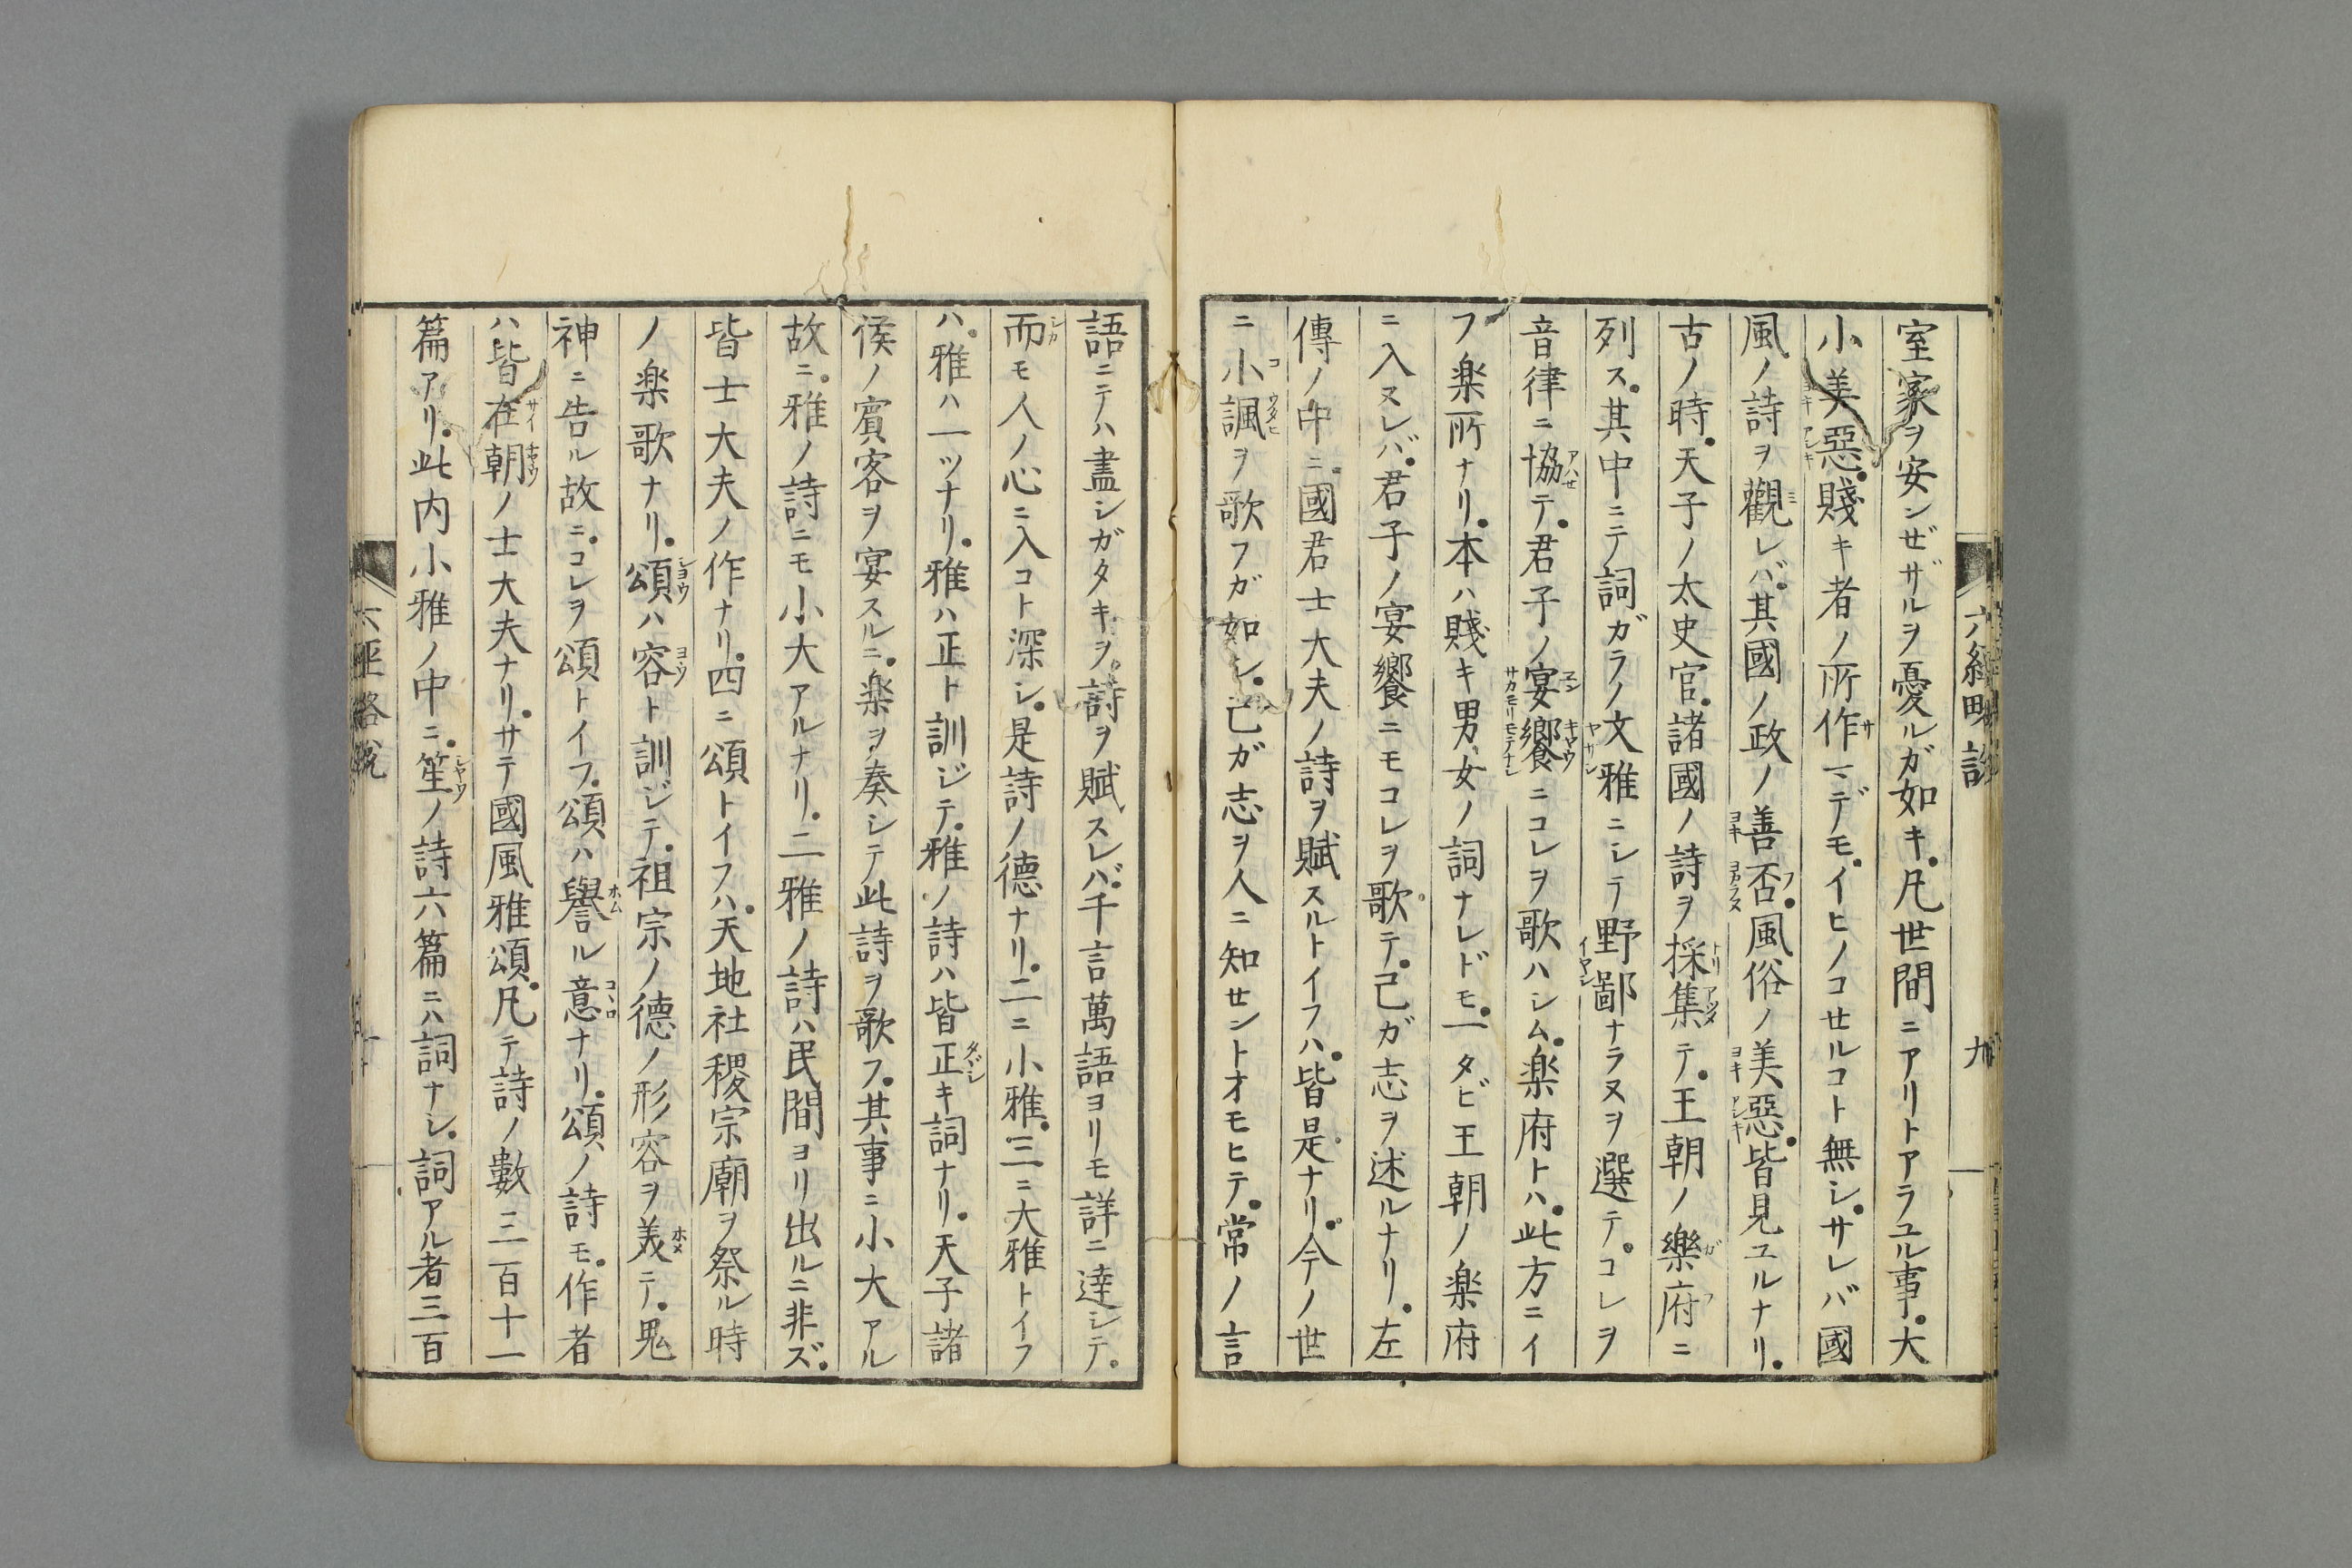 六經略説
九
室家ヲ安ンゼザルヲ憂ルガ如キ。凡世間ニアリトアラユル事。大
小美惡。賤キ者ノ所作マデモ。イヒノコセルコト無シ。サレバ國
風ノ詩ヲ觀レバ。其國ノ政ノ善否。風俗ノ美惡。皆見ユルナリ。
古ノ時。天子ノ太史官。諸國ノ詩ヲ採集テ。王朝ノ樂府ニ
列ス。其中ニテ詞ガラノ文雅ニシテ野鄙ナラヌヲ選テ。コレヲ
音律ニ協テ。君子ノ宴饗ニコレヲ歌ハシム。楽府トハ。此方ニイ
フ楽所ナリ。本ハ賤キ男女ノ詞ナレドモ。一タビ王朝ノ楽府
ニ入ヌレバ。君子ノ宴饗ニモコレヲ歌テ。己ガ志ヲ述ルナリ。左
傳ノ中ニ。國君士大夫ノ詩ヲ賦スルトイフハ。皆是ナリ。今ノ世
ニ小諷ヲ歌フガ如シ。己ガ志ヲ人ニ知セントオモヒテ。常ノ言
語ニテハ盡シガタキヲ。詩ヲ賦スレバ。千言萬語ヨリモ詳ニ達シテ。
而モ人ノ心ニ入コト深シ。是詩ノ德ナリ。二ニ小雅。三ニ大雅トイフ
ハ。雅ハ一ツナリ。雅ハ正ト訓ジテ。雅ノ詩ハ皆正キ詞ナリ。天子諸
侯ノ賓客ヲ宴スルニ。楽ヲ奏シテ此詩ヲ歌フ。其事ニ小大アル
故ニ。雅ノ詩ニモ小大アルナリ。二雅ノ詩ハ民間ヨリ出ルニ非ズ。
皆士大夫ノ作ナリ。四ニ頌トイフハ。天地社稷宗廟ヲ祭ル時
ノ楽歌ナリ。頌ハ容ト訓ジテ。祖宗ノ德ノ形容ヲ美テ。鬼
神ニ告ル故ニ。コレヲ頌トイフ。頌ハ譽ル意ナリ。頌ノ詩モ。作者
ハ皆在朝ノ士大夫ナリ。サテ國風雅頌。凡テ詩ノ數三百十一
篇アリ。此内小雅ノ中ニ。笙ノ詩六篇ニハ詞ナシ。詞アル者三百
六經略説